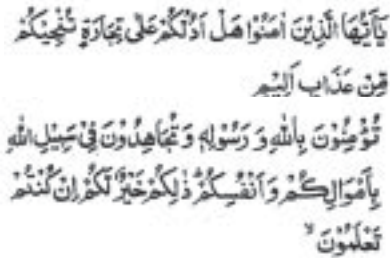 يٰۤاَيُّهَا الَّذِيْنَ اٰمَنُوْا هَلْ اَدُلُّكُمْ عَلٰى تِجَارَةٍ تُنْجِيْكُمْ
مِّنْ عَذَابٍ اَلِيْمٍ
تُؤْمِنُوْنَ بِاللّٰهِ وَ رَسُوْلِهٖ وَ تُجَاهِدُوْنَ فِيْ سَبِيْلِ اللّٰهِ
بِاَمْوَالِكُمْ وَ اَنْفُسِكُمْ ذٰلِكُمْ خَيْرٌ لَّكُمْ اِنْ كُنْتُمْ
تَعْلَمُوْنَ ۙ